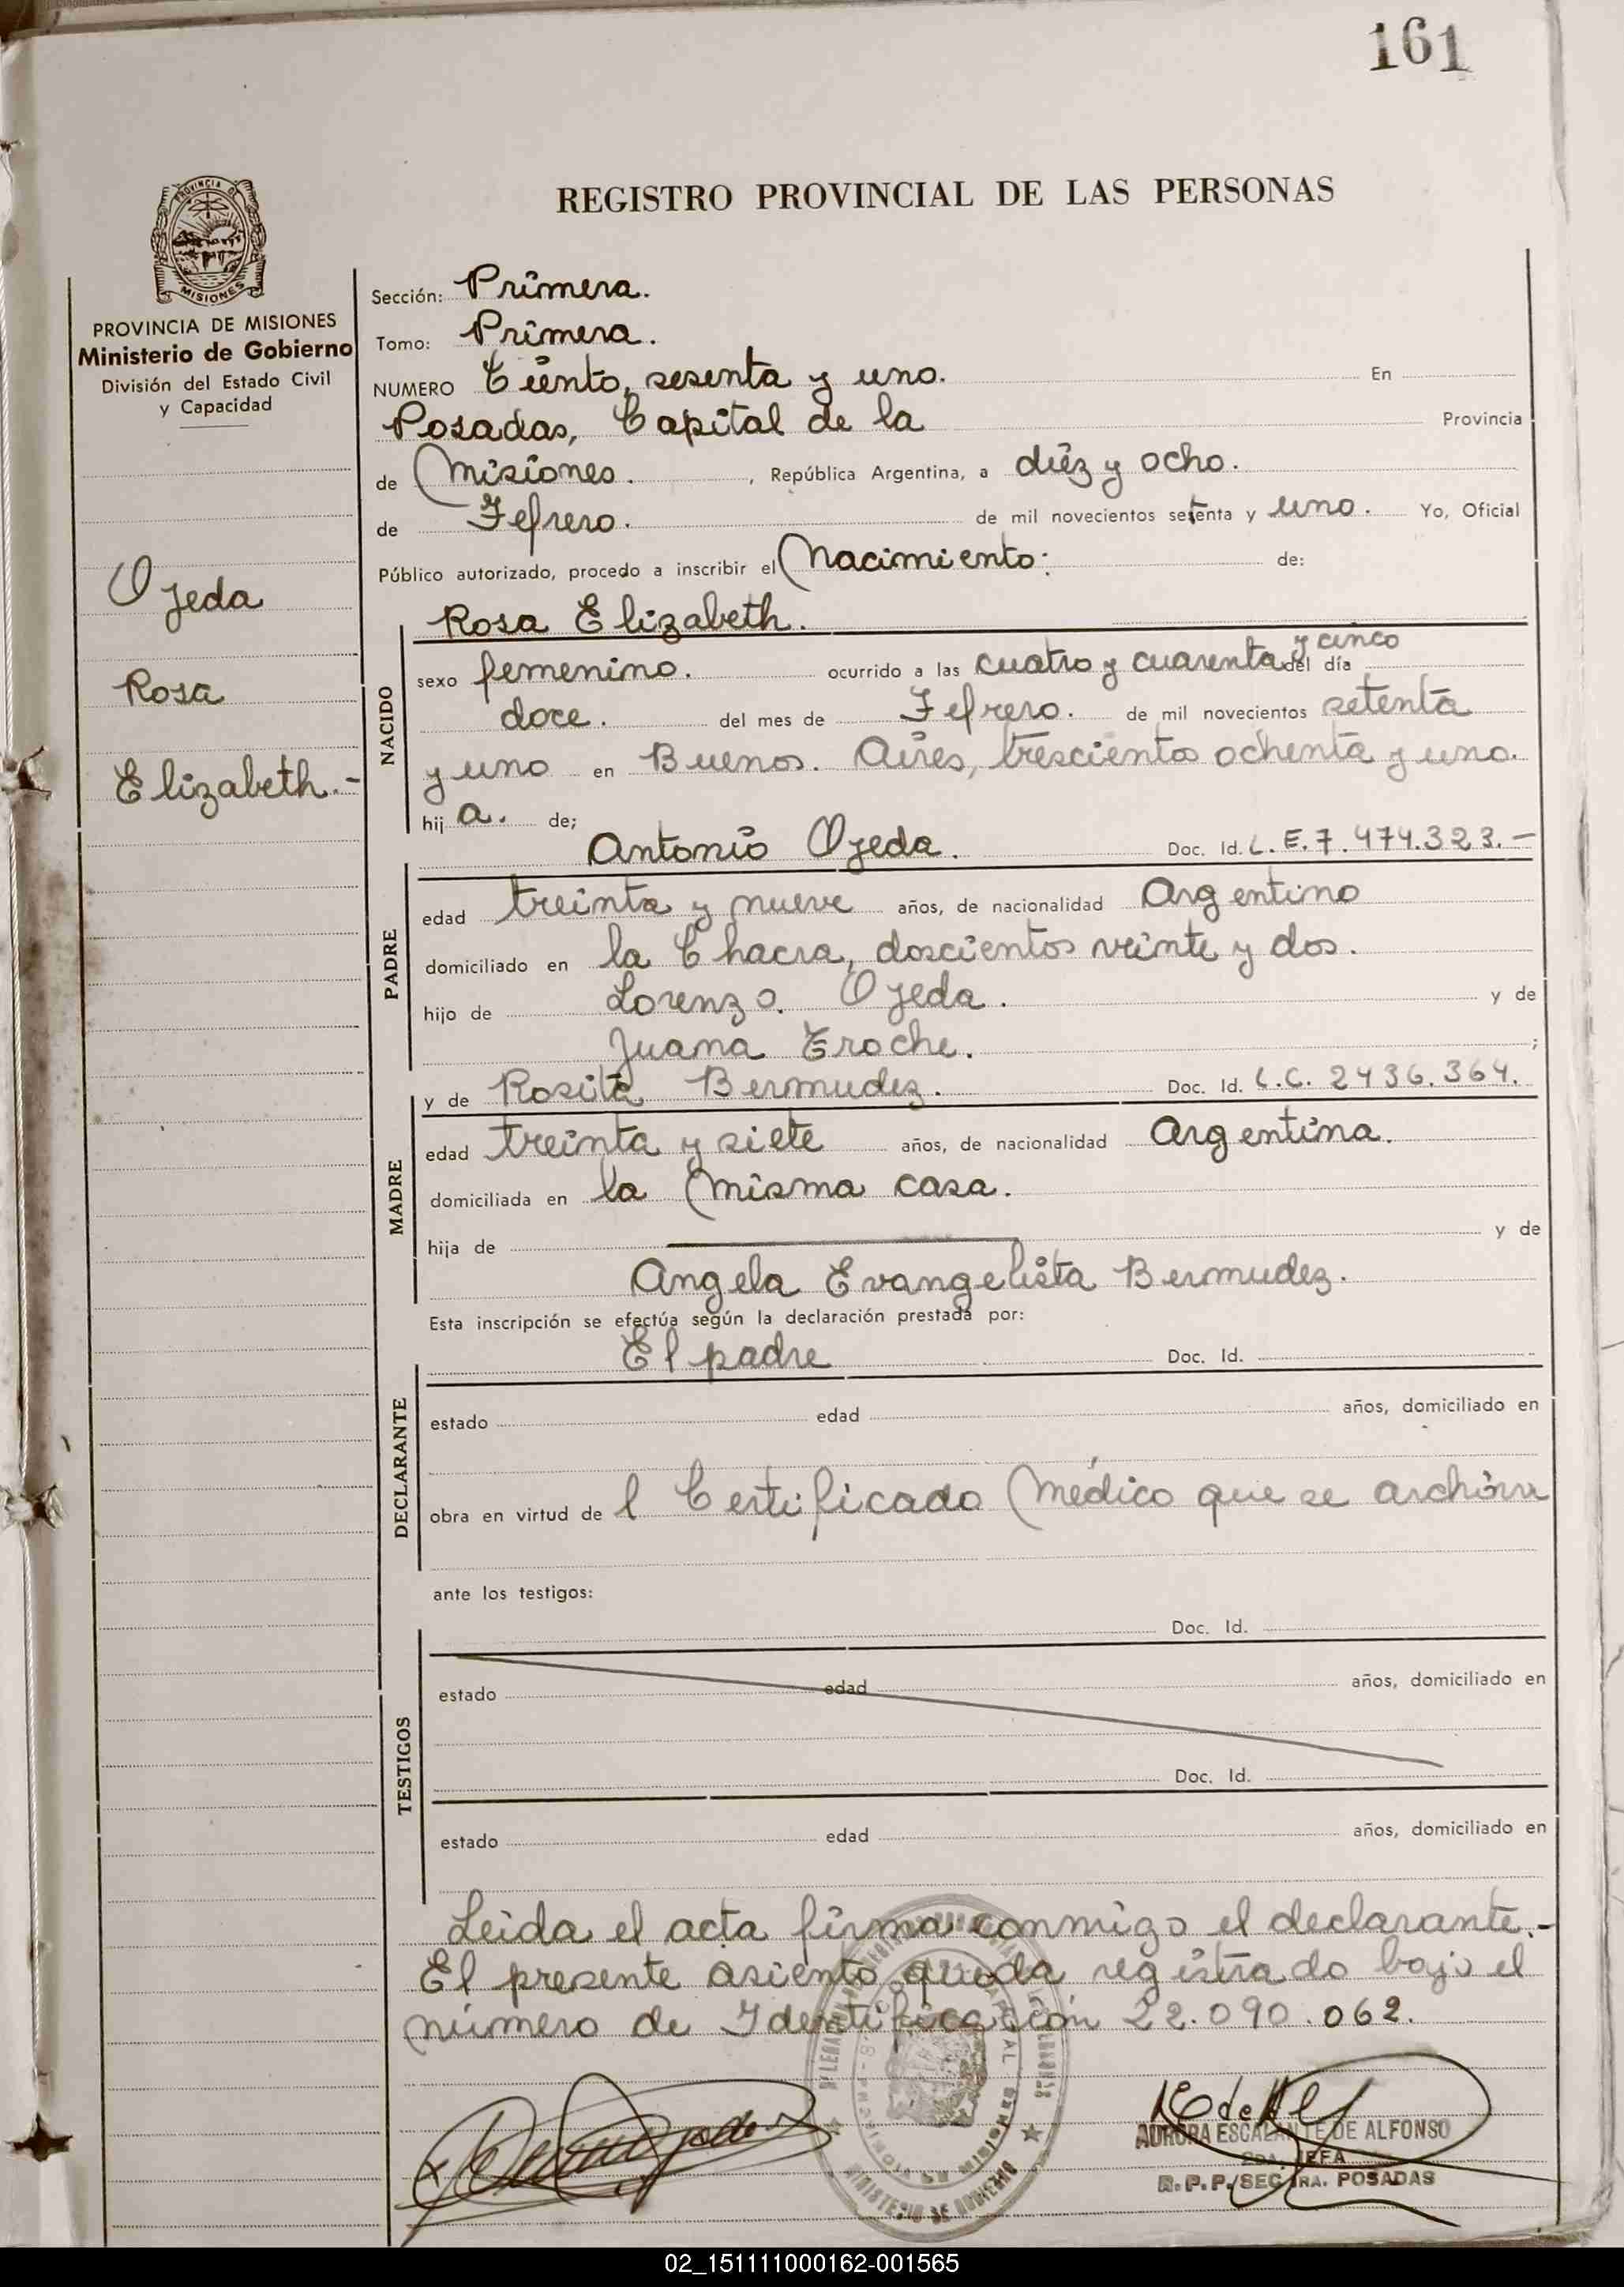 161
REGISTRO PROVINCIAL DE LAS PERSONAS
PROVINCIA DE MISIONES
Ministerio de Gobierno
División del Estado Civil
y Capacidad
Ojeda
Rosa
Elizabeth.-
Sección: Primera.
Tomo: Primera.
NUMERO Ciento, sesenta y uno. En
Posadas, Capital de la Provincia
de Misiones. , República Argentina, a diez y ocho.
de Febrero. de mil novecientos setenta y uno. Yo, Oficial
Público autorizado, procedo a inscribir el Nacimiento: de:
Rosa Elizabeth.
NACIDO
sexo femenino. ocurrido a las cuatro y cuarenta y cinco del día
doce. del mes de Febrero. de mil novecientos setenta
y uno en Buenos. Aires, trescientos ochenta y uno.
hij a. de;
Antonio Ojeda. Doc. Id. L.E.7.474.323.-
PADRE
edad treinta y nueve años, de nacionalidad Argentino
domiciliado en la Chacra, doscientos veinte y dos.
hijo de Lorenzo. Ojeda. y de
Juana Troche. ;
y de Rosita Bermudez. Doc. Id. L.C. 2436.364.
MADRE
edad treinta y siete años, de nacionalidad Argentina.
domiciliada en la misma casa.
hija de y de
Angela Evangelista Bermudez.
Esta inscripción se efectúa según la declaración prestada por:
El padre Doc. Id.
DECLARANTE
estado edad años, domiciliado en
obra en virtud de l Certificado Médico que se archiva
ante los testigos:
Doc. Id.
TESTIGOS
estado edad años, domiciliado en
Doc. Id.
estado edad años, domiciliado en
Leida el acta firma conmigo el declarante.-
El presente asiento queda registrado bajo el
número de Identificación 22.090.062.
AURORA ESCALANTE DE ALFONSO
JEFA
R.P.P./SEC 1RA. POSADAS
02_151111000162-001565